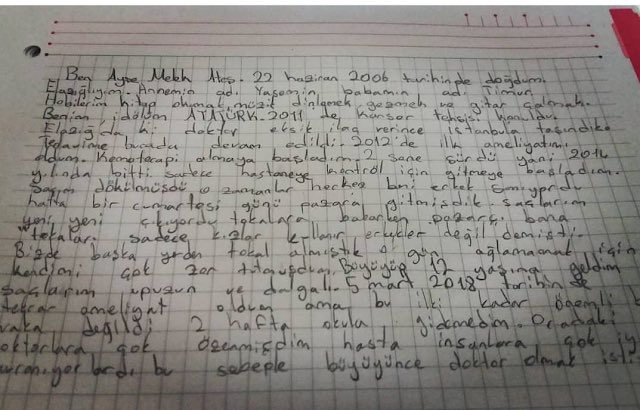 Ben Ayşe Melek Ateş. 22 haziran 2006 tarihinde doğdum.
Elazığlıyım. Annemin adı Yasemin, babamın adı Timur.
Hobilerim kitap okumak, müzik dinlemek, gezmek ve gitar çalmak.
Benim idolüm ATATÜRK. 2011 de kanser teşhisi konuldu.
Elazığ'da ki doktor eksik ilaç verince İstanbula taşındık.
Tedavime burada devam edildi. 2012'de ilk ameliyatımı
oldum. Kemoterapi almaya başladım. 2 sene sürdü yani 2014
yılında bitti sadece hastaneye kontrol için gitmeye başladım.
Saçım dökülmüşdü o zamanlar herkes beni erkek sanıyordu
hatta bir cumartesi günü pazara gitmişdik. Saçlarım
yeni yeni çıkıyordu tokalara bakarken pazarcı bana
tokaları sadece kızlar kullanır erkekler değil demişti.
Bizde başka yerden tokal almıştık o gün ağlamamak için
kendimi çok zor tutmuşdum. Büyüyüp 12 yaşıma geldim
saçlarım upuzun ve dalgalı. 5 mart 2018 tarihinde
tekrar ameliyat oldum ama bu ilki kadar önemli
vaka değildi 2 hafta okula gidemedim. Oradaki
oktorlara çok özenmişdim hasta insanlara çok iy
bu sebeple büyüyünce doktor olmak isti